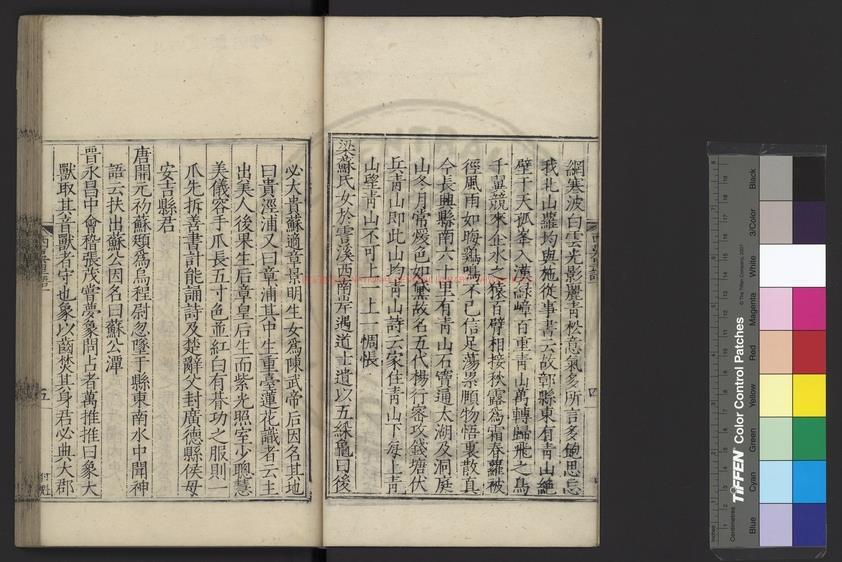 綱寒波白雲光影麗青松意氣多所言多飽思忘
我札山蘿均與施從事書云故鄣縣東有青山絶
壁干天孤峯入漢綠嶂百重青山萬轉歸飛之鳥
千翼競來企水之猿百臂相接秋露為霜春蘿被
徑風雨如晦鷄鳴不已信足蕩累頤物悟裏散真
今長興縣南六十里有青山石竇通太湖及洞庭
山冬月常煖色如黛故名五代楊行密攻錢塘伏
兵青山即此山均青山詩云家住青山下每上青
山望青山不可上一上一惆悵
梁蘇氏女於霅溪西南岸遇道士遺以五綵龜曰後
必大貴蘇適章景明生女為陳武帝后因名其地
曰貴涇浦又曰章浦其中生重臺蓮花識者云主
出美人後果生后章皇后生而紫光照室少聰慧
美儀容手爪長五寸色並紅白有朞功之服則
爪先拆善書計能誦詩及楚辭父封廣德縣侯母
安吉縣君
唐開元初蘇頲為烏程尉忽墜于縣東南水中聞神
語云扶出蘇公因名曰蘇公潭
晉永昌中會稽張茂嘗夢象問占者萬推推曰象大
獸取其音獸者守也象以齒焚其身君必典大郡
四
五
Black
3/Color
White
Magenta
Red
Yellow
Green
Cyan
Blue
TIFFEN Color Control Patches
© The Tiffen Company, 2007
Centimetres
Inches